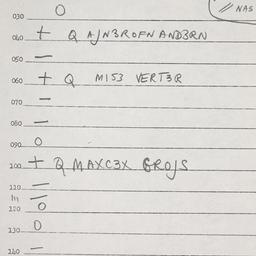 // NAS
030 O
040 + Q AJN3ROFN AND3RN
050 —
060 + Q MIS3 VERT3R
070 —
080 —
090 O
100 + Q MAXC3X GROJS
110 —
111 —
120 O
130 O
140 —